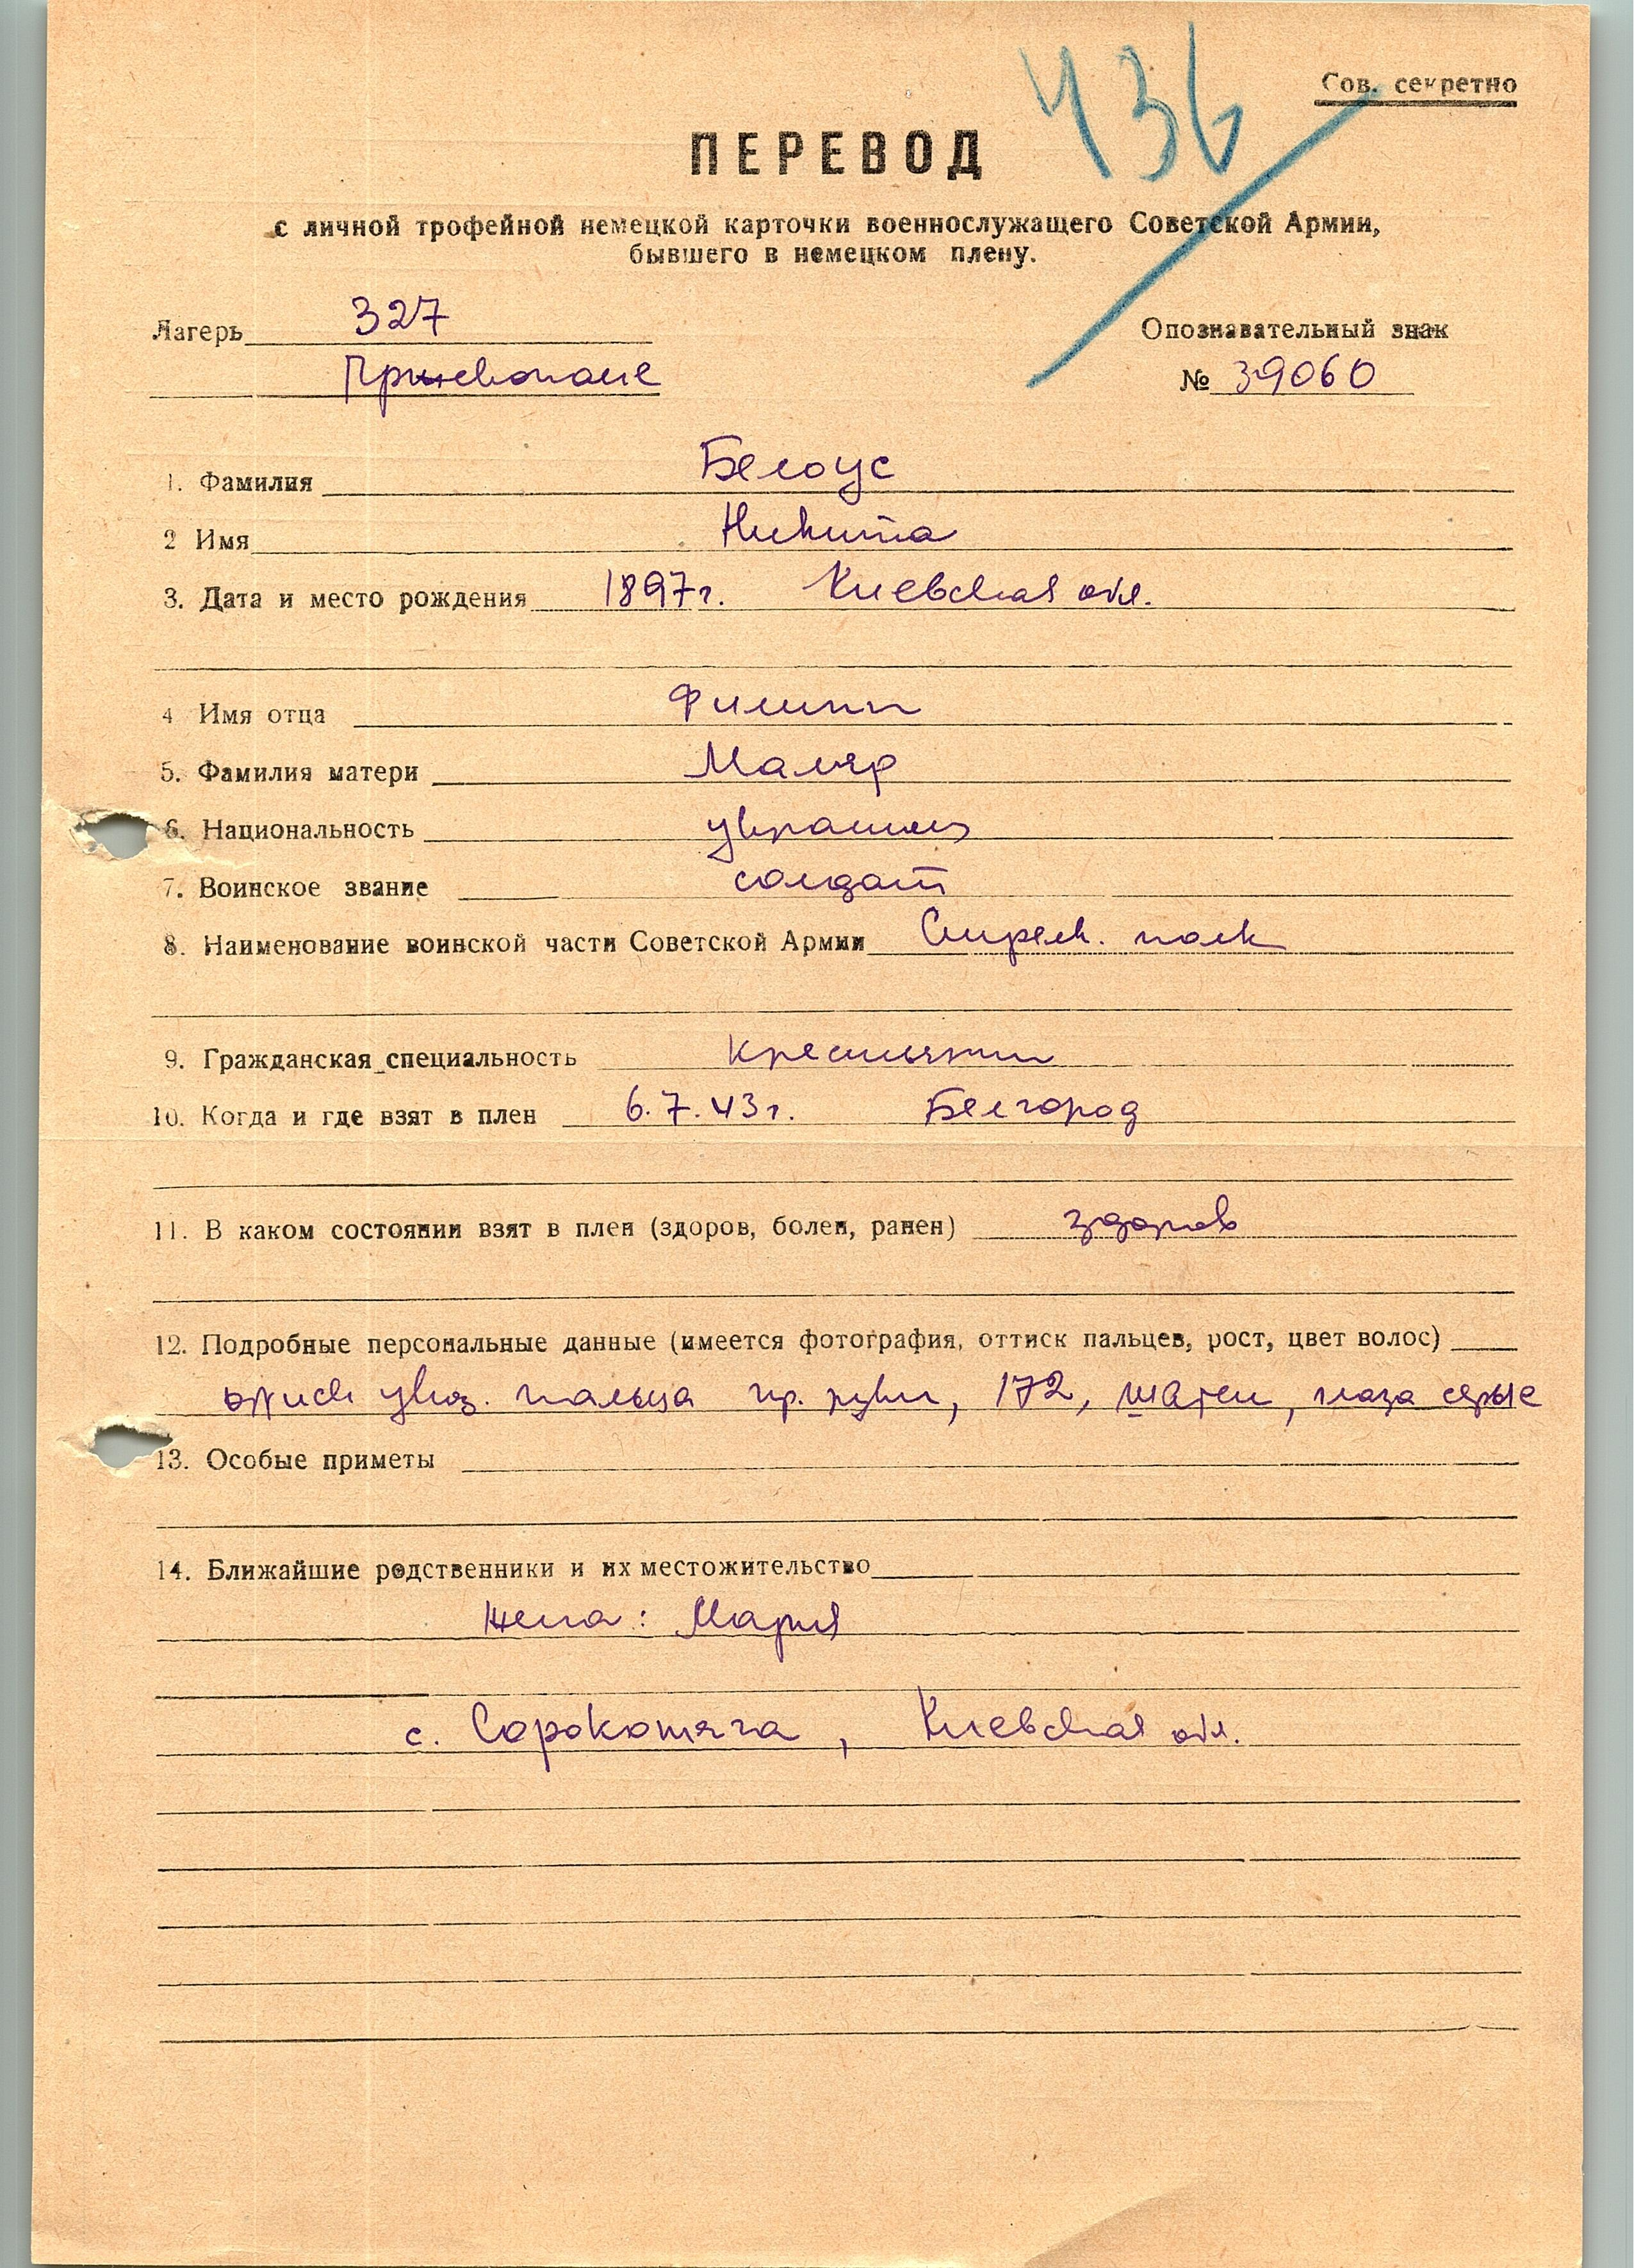 436
Сов. секретно
ПЕРЕВОД
с личной трофейной немецкой карточки военнослужащего Советской Армии,
бывшего в немецком плену.
Лагерь 327
Опознавательный знак
№ 39060
1. Фамилия Белоус
2 Имя Никита
3. Дата и место рождения 1897г. Киевская обл.
4 Имя отца Филипп
5. Фамилия матери Маляр
6. Национальность украинец
7. Воинское звание солдат
8. Наименование воинской части Советской Армии Стрелк. полк
9. Гражданская специальность крестьянин
10. Когда и где взят в плен 6.7.43г. Белгород
11. В каком состоянии взят в плен (здоров, болен, ранен) здоров
12. Подробные персональные данные (имеется фотография, оттиск пальцев, рост, цвет волос)
указ. пальца пр. руки, 172, шатен, глаза серые
13. Особые приметы
14. Ближайшие родственники и их местожительство
Жена: Мария
с. Сорокотяга, Киевская обл.